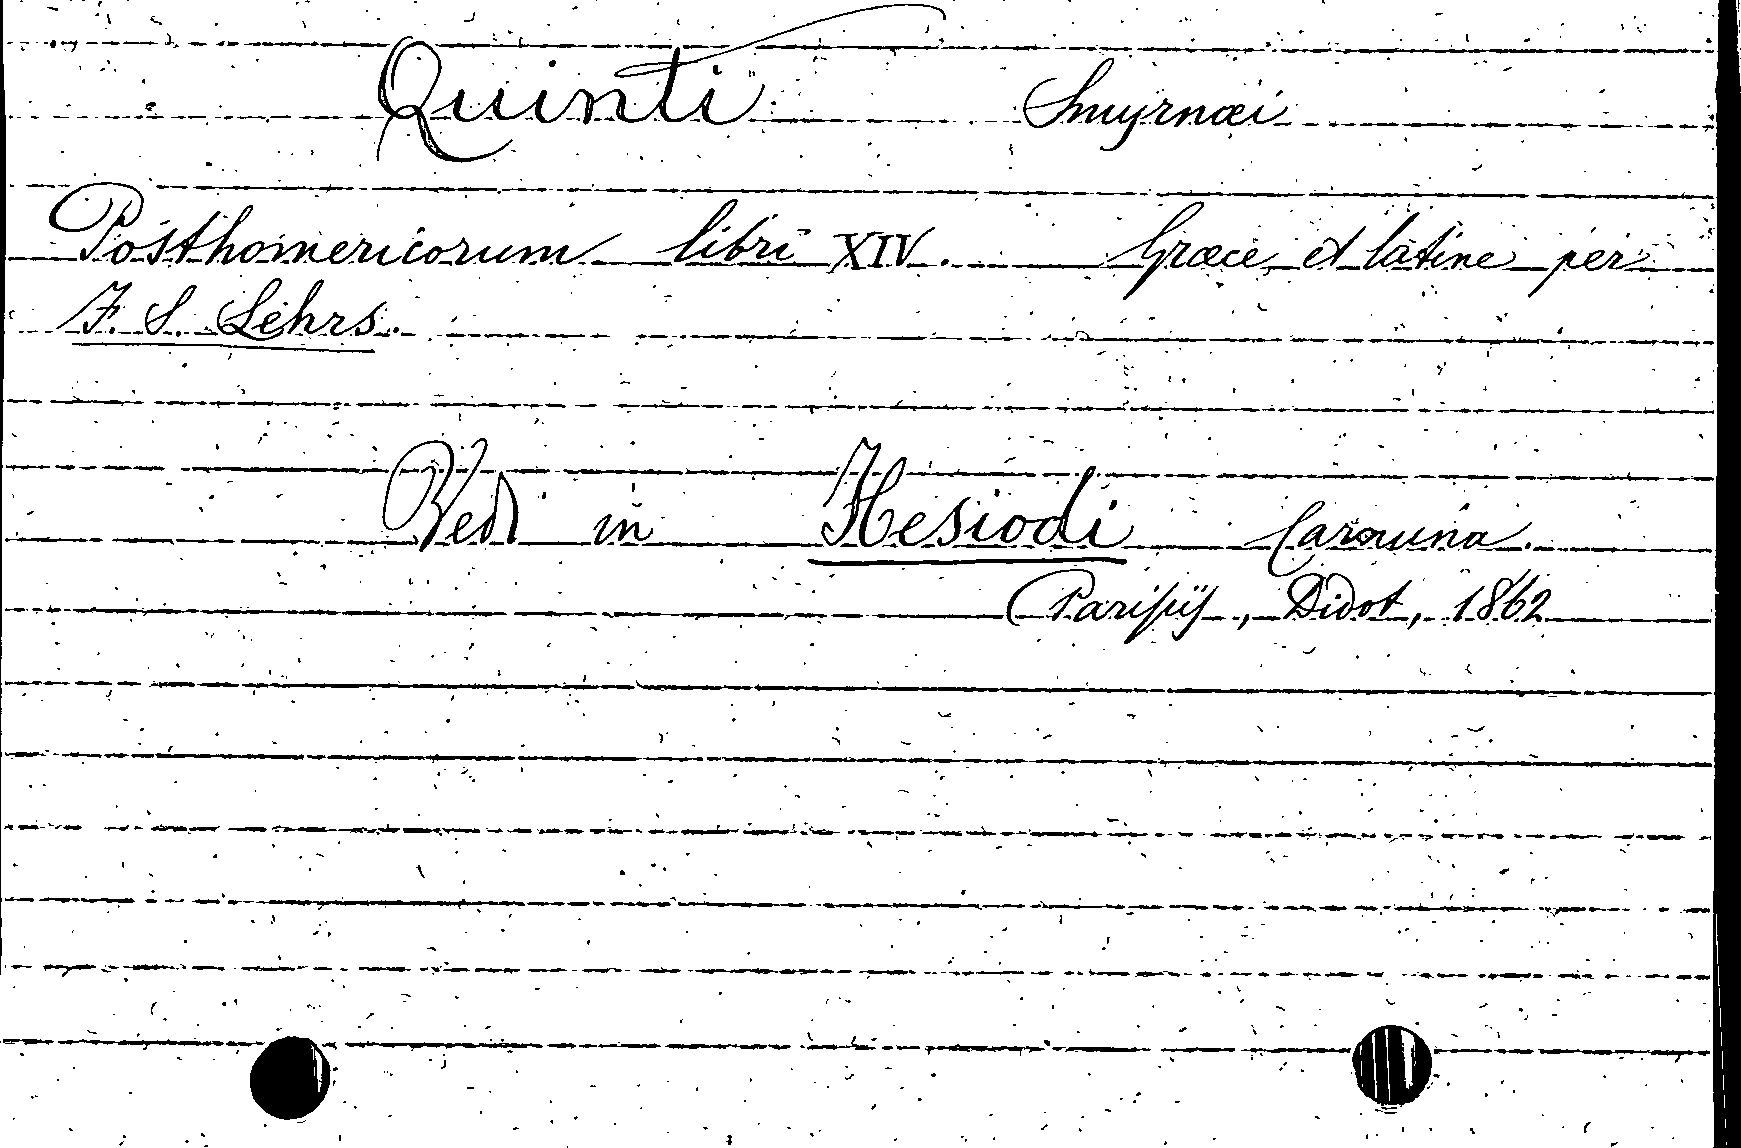 Quinti Smyrnæi
Posthomericorum libri XIV. Græce et latine per
F. S. Lehrs.
Vedi in Hesiodi Carmina.
Parisijs, Didot, 1862